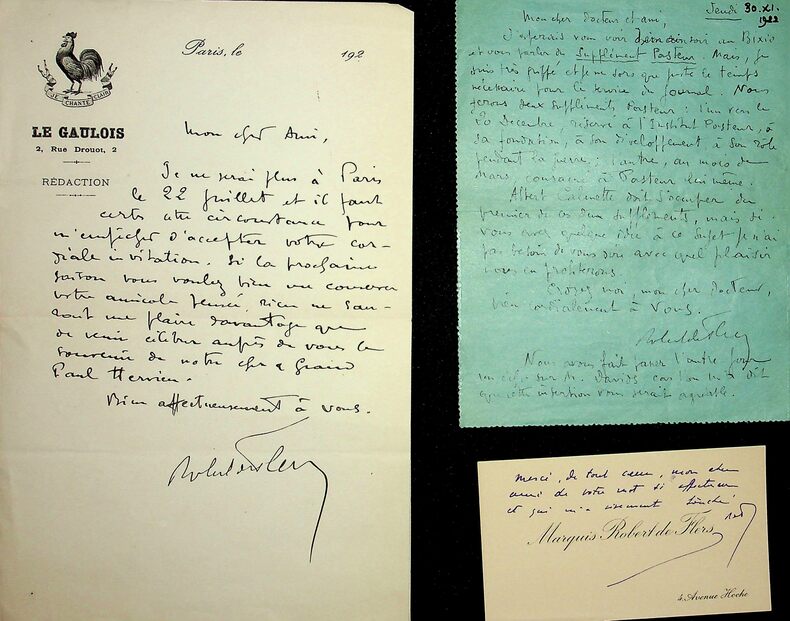 JE CHANTE CLAIR
LE GAULOIS
2, Rue Drouot, 2
RÉDACTION
Paris, le 192
Mon cher Ami,
Je ne serai plus à Paris
le 22 juillet et il faut
certes cette circonstance pour
m'empêcher d'accepter votre cor-
diale invitation. Si la prochaine
saison vous voulez bien me conserver
votre amicale pensée, rien ne sau-
rait me plaire davantage que
de venir célébrer auprès de vous le
souvenir de notre cher & grand
Paul Hervieu.
Bien affectueusement à vous.
Robert de Flers
Jeudi 30.XI.
1922
Mon cher docteur et ami,
J'espérais vous voir soir au Bixio
et vous parler du Supplément Pasteur. Mais, je
suis très grippé et je ne sors que juste le temps
nécessaire pour le service du journal. Nous
ferons deux suppléments Pasteur : l'un vers le
20 Décembre, réservé à l'Institut Pasteur, à
sa fondation, à son développement à son rôle
pendant la guerre; l'autre, au mois de
Mars consacré à Pasteur lui même.
Albert Calmette doit s'occuper du
premier de ces deux suppléments, mais si
vous avez quelque idée à ce sujet je n'ai
pas besoin de vous dire avec quel plaisir
nous en profiterons.
Croyez moi, mon cher docteur,
bien cordialement à vous.
Robert de Flers
Nous avons fait passer l'autre jour
un écho sur M. Davids car l'on m'a dit
que cette insertion vous serait agréable.
Merci, de tout cœur, mon cher
ami de votre mot si affectueux
et qui m'a vivement touché
Marquis Robert de Flers
4, Avenue Hoche